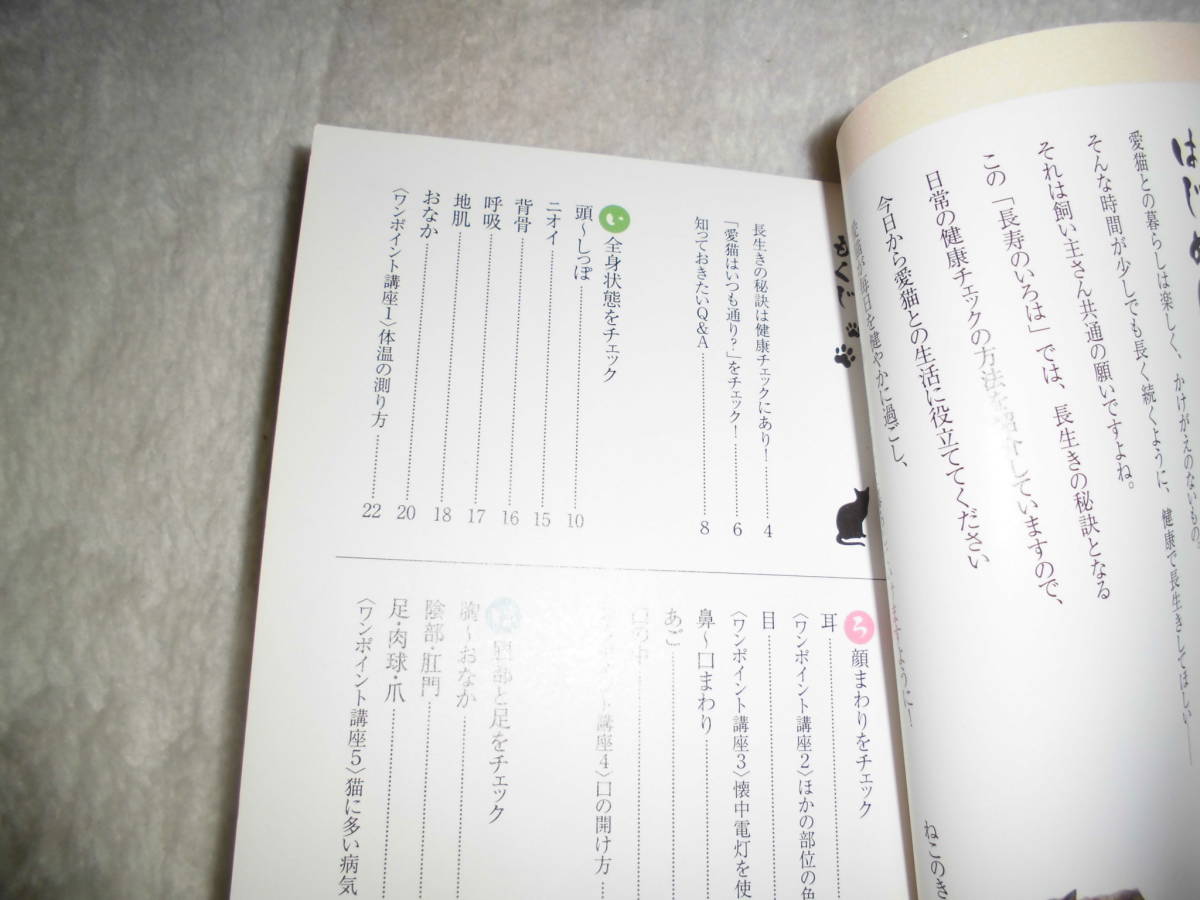 はじめ
愛猫との暮らしは楽しく、かけがえのないもの。
そんな時間が少しでも長く続くように、健康で長生きしてほしい――
それは飼い主さん共通の願いですよね。
この「長寿のいろは」では、長生きの秘訣となる
日常の健康チェックの方法を紹介していますので、
今日から愛猫との生活に役立ててください
が毎日を健やかに過ごし、
ますように！
ねこのき
もくじ
長生きの秘訣は健康チェックにあり！ 4
「愛猫はいつも通り？」をチェック！ 6
知っておきたいQ&A 8
い 全身状態をチェック
頭～しっぽ 10
ニオイ 15
背骨 16
呼吸 17
地肌 18
おなか 20
〈ワンポイント講座1〉体温の測り方 22
ろ 顔まわりをチェック
耳
〈ワンポイント講座2〉ほかの部位の色
目
〈ワンポイント講座3〉懐中電灯を使
鼻～口まわり
あご
口の中
ント講座4〉口の開け方
は 胴部と足をチェック
胸～おなか
陰部・肛門
足・肉球・爪
〈ワンポイント講座5〉猫に多い病気